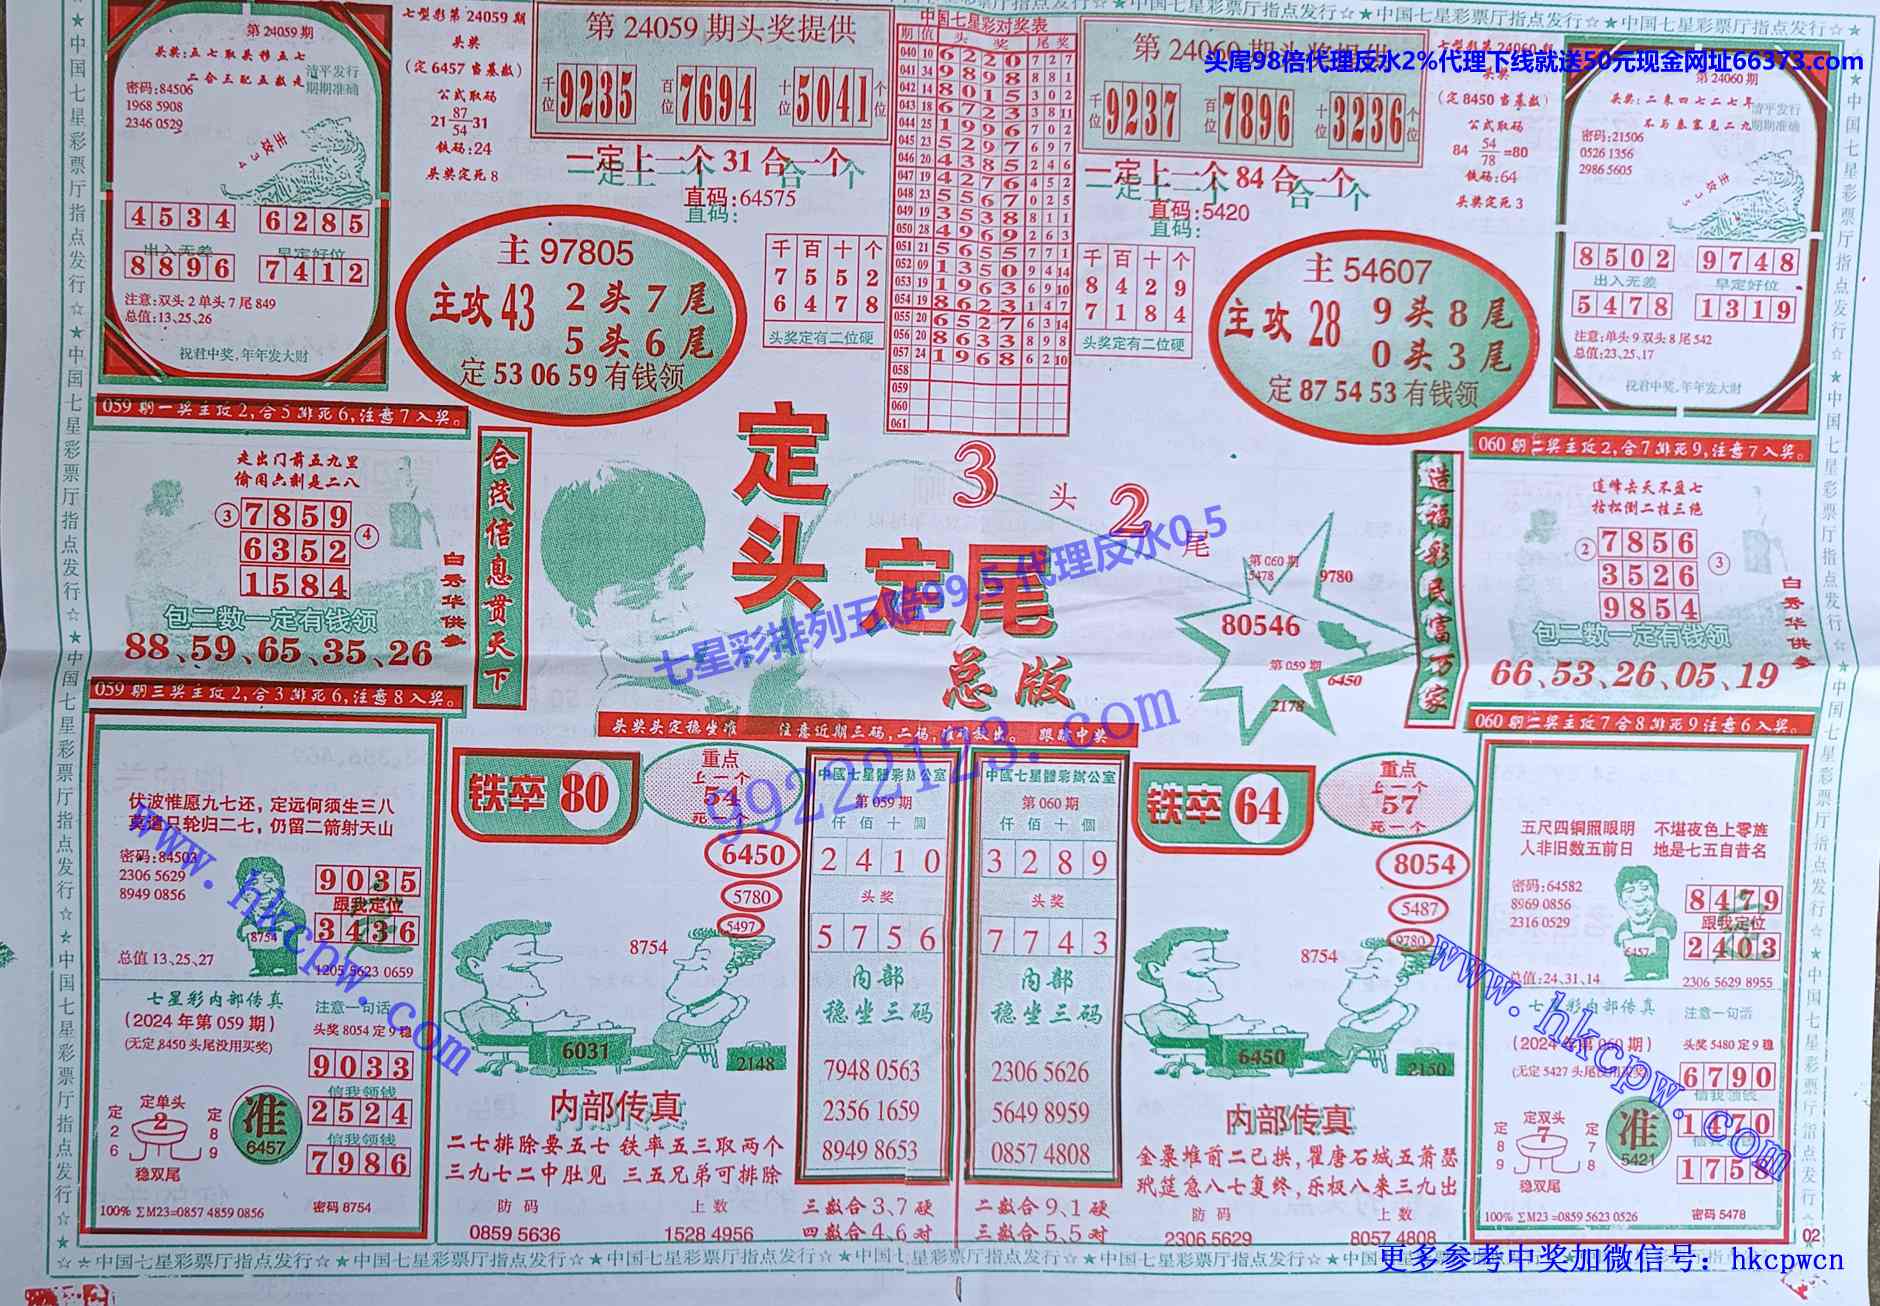 头尾98倍代理反水2%代理下线就送50元现金网址66373.com
第24059期
头奖:五七取头移五七
二合三配五数走
清平发行
期期准确
密码:84506
1968 5908
2346 0529
主攻34
4534 6285
出入无差 早定好位
8896 7412
注意:双头2单头7尾849
总值:13、25、26
祝君中奖,年年发大财
七型彩第24059期
头奖
(定6457当基数)
公式取码
21 87/54 31
铁码:24
头奖定死8
第24059期头奖提供
千位 9235 百位 7694 十位 5041 个位
一定上一个31合一个
直码:64575
主97805
主攻43 2头7尾
5头6尾
定53 06 59有钱领
千百十个
7552
6478
头奖定有二位硬
中国七星彩对奖表
期 值 头奖 尾奖
040 10 6220 727
041 34 9898 881
042 14 8015 302
043 18 6723 3811
044 25 1996 702
045 23 5297 697
046 20 4385 246
047 19 4276 452
048 23 5567 025
049 19 3538 811
050 28 4969 263
051 21 5655 771
052 09 1350 9414
053 19 1963 6910
054 19 8623 147
055 20 6527 6314
056 20 8633 898
057 24 1968 6210
058
059
060
061
第24060期头奖提供
千位 9237 百位 7896 十位 3236 个位
一定上一个84合一个
直码:5420
千百十个
8429
7184
头奖定有二位硬
主54607
主攻28 9头8尾
0头3尾
定87 54 53有钱领
七型彩第24060期
头奖
(定8450当基数)
公式取码
84 54/78 =80
铁码:64
头奖定死3
第24060期
头奖:二来四七二七年
不与秦塞见二九
清平发行
期期准确
密码:21506
0526 1356
2986 5605
8502 9748
出入无差 早定好位
5478 1319
注意:单头9双头8尾542
总值:23、25、17
祝君中奖,年年发大财
059期一奖主攻2,合5排死6,注意7入奖。
走出门前五九里
偷闲六刻是二八
③ 7859
6352 ④
1584
包二数一定有钱领
88、59、65、35、26
白秀华供参
合茂信息贯天下
定头定尾
总版
3头2尾
第060期
5478
9780
80546
第059期
6450
2178
七星彩排列五赔99.5代理反水0.5
99222123.com
造福彩民富万家
060期二奖主攻2,合7排死9,注意7入奖。
连峰去天不盈七
枯松倒二挂三绝
② 7856
3526 ③
9854
包二数一定有钱领
66、53、26、05、19
白秀华供参
059期三奖主攻2,合3排死6,注意8入奖。
伏波惟愿九七还,定远何须生三八
莫道只轮归二七,仍留二箭射天山
密码:84503
2306 5629
8949 0856
8754
总值13、25、27
9035
跟我定位
3436
1205 5623 0659
七星彩内部传真
(2024年第059期)
(无定8450头尾没用买奖)
注意一句话
头奖8054定9稳
9033
信我领钱
2524
信我领钱
7986
定单头
定26 2 定89
稳双尾
准
6457
100% ΣM23=0857 4859 0856
密码8754
头奖头定稳坐准 注意近期三码,二码,准可放出。 跟踪中奖
铁卒80
重点
上一个
54
死一个
6450
5780
5497
8754
6031
2148
内部传真
二七排除要五七 铁率五三取两个
三九七二中肚见 三五兄弟可排除
防码 上数
0859 5636 1528 4956
中國七星體彩辦公室
第059期
仟佰十個
2410
头奖
5756
内部
稳坐三码
7948 0563
2356 1659
8949 8653
三数合3、7硬
四数合4、6对
中國七星體彩辦公室
第060期
仟佰十個
3289
头奖
7743
内部
稳坐三码
2306 5626
5649 8959
0857 4808
二数合9、1硬
三数合5、5对
铁卒64
重点
上一个
57
死一个
8054
5487
9780
8754
6450
2150
内部传真
金粟堆前二已拱,瞿唐石城五萧瑟
玳筵急八七复终,乐极八来三九出
防码 上数
2306 5629 8057 4808
060期二奖主攻7合8排死9注意6入奖。
五尺四铜照眼明 不堪夜色上零旌
人非旧数五前日 地是七五自昔名
密码:64582
8969 0856
2316 0529
6457
总值:24、31、14
8479
跟我定位
2403
2306 5629 8955
七星彩内部传真
(2024年第060期)
(无定5427头尾没用买奖)
注意一句话
头奖5480定9稳
6790
信我领钱
1470
信我领钱
1758
定双头
定89 7 定78
稳双尾
准
5421
100% ΣM23=0859 5623 0526
密码5478
02
www.hkcpw.com
www.hkcpw.com
☆★中国七星彩票厅指点发行☆★中国七星彩票厅指点发行☆★中国七星彩票厅指点发行
更多参考中奖加微信号：hkcpwcn